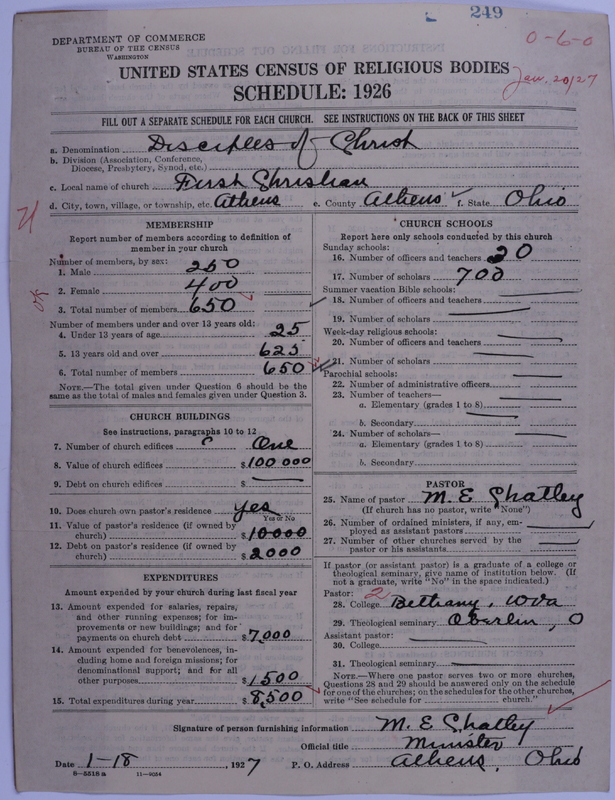 249
DEPARTMENT OF COMMERCE
BUREAU OF THE CENSUS
WASHINGTON
0-6-0
UNITED STATES CENSUS OF RELIGIOUS BODIES
Jan. 20/27
SCHEDULE: 1926
FILL OUT A SEPARATE SCHEDULE FOR EACH CHURCH. SEE INSTRUCTIONS ON THE BACK OF THIS SHEET
a. Denomination Disciples of Christ
b. Division (Association, Conference,
Diocese, Presbytery, Synod, etc.)
c. Local name of church First Christian
d. City, town, village, or township, etc. Athens e. County Athens ✓ f. State Ohio
MEMBERSHIP
Report number of members according to definition of
member in your church
Number of members, by sex:
1. Male 250
2. Female 400
3. Total number of members 650
Number of members under and over 13 years old:
4. Under 13 years of age 25
5. 13 years old and over 625
6. Total number of members 650
NOTE.—The total given under Question 6 should be the
same as the total of males and females given under Question 3.
CHURCH BUILDINGS
See instructions, paragraphs 10 to 12
7. Number of church edifices One
8. Value of church edifices $100 000
9. Debt on church edifices $
10. Does church own pastor's residence? yes
Yes or No
11. Value of pastor's residence (if owned by
church) $10000
12. Debt on pastor's residence (if owned by
church) $2000
EXPENDITURES
Amount expended by your church during last fiscal year
13. Amount expended for salaries, repairs,
and other running expenses; for im-
provements or new buildings; and for
payments on church debt $7,000
14. Amount expended for benevolences, in-
cluding home and foreign missions; for
denominational support; and for all
other purposes $1500
15. Total expenditures during year $8,500
CHURCH SCHOOLS
Report here only schools conducted by this church
Sunday schools:
16. Number of officers and teachers 20
17. Number of scholars 700
Summer vacation Bible schools:
18. Number of officers and teachers
19. Number of scholars
Week-day religious schools:
20. Number of officers and teachers
21. Number of scholars
Parochial schools:
22. Number of administrative officers
23. Number of teachers—
a. Elementary (grades 1 to 8)
b. Secondary
24. Number of scholars—
a. Elementary (grades 1 to 8)
b. Secondary
PASTOR
25. Name of pastor M. E. Chatley
(If church has no pastor, write "None")
26. Number of ordained ministers, if any, em-
ployed as assistant pastors
27. Number of other churches served by the
pastor or his assistants
If pastor (or assistant pastor) is a graduate of a college or
theological seminary, give name of institution below. (If
not a graduate, write "No" in the space indicated.)
Pastor: 2
28. College Bethany, W Va
29. Theological seminary Oberlin, O
Assistant pastor:
30. College
31. Theological seminary
NOTE.—Where one pastor serves two or more churches,
Questions 28 and 29 should be answered only on the schedule
for one of the churches; on the schedules for the other churches,
write "See schedule for church."
Signature of person furnishing information M. E. Chatley
Official title Minister
Date 1-18, 1927 P. O. Address Athens, Ohio
8-5518 a 11-9034